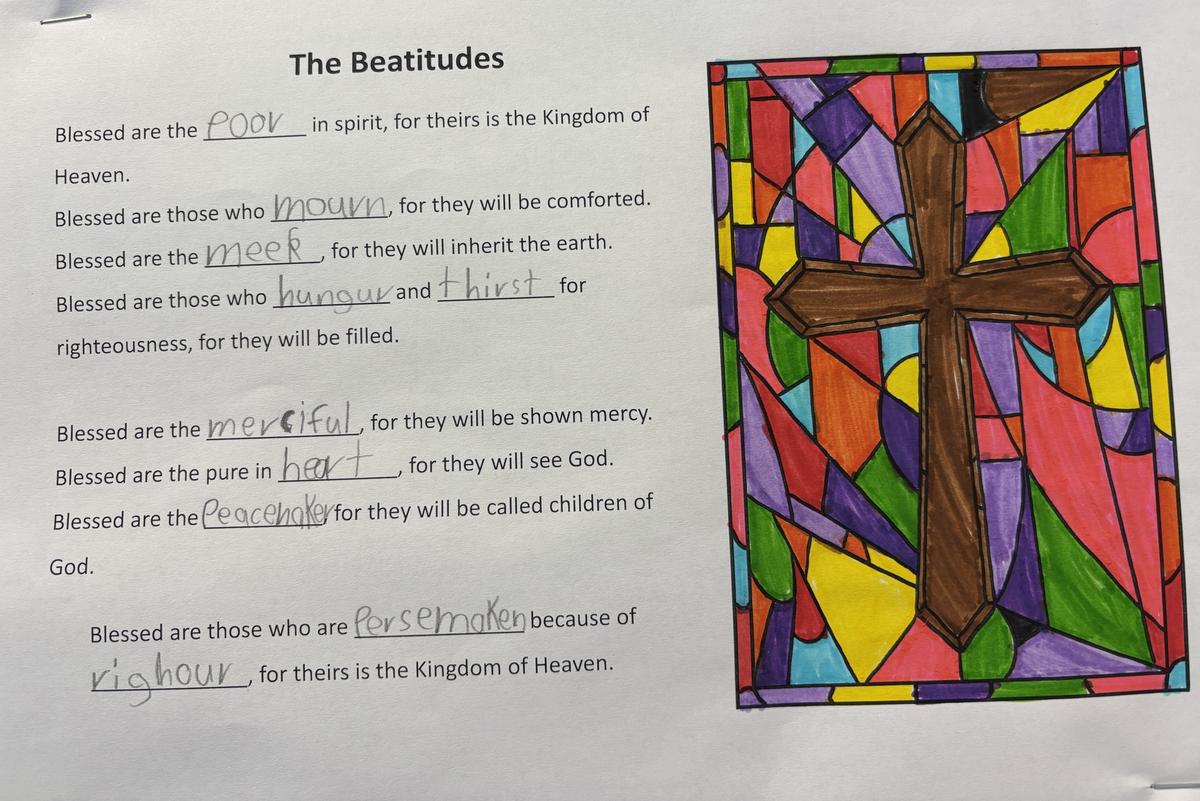 The Beatitudes
Blessed are the poor in spirit, for theirs is the Kingdom of
Heaven.
Blessed are those who mourn, for they will be comforted.
Blessed are the meek, for they will inherit the earth.
Blessed are those who hungur and thirst for
righteousness, for they will be filled.
Blessed are the merciful, for they will be shown mercy.
Blessed are the pure in heart, for they will see God.
Blessed are the Peacehaker, for they will be called children of
God.
Blessed are those who are Persemaken because of
righour, for theirs is the Kingdom of Heaven.